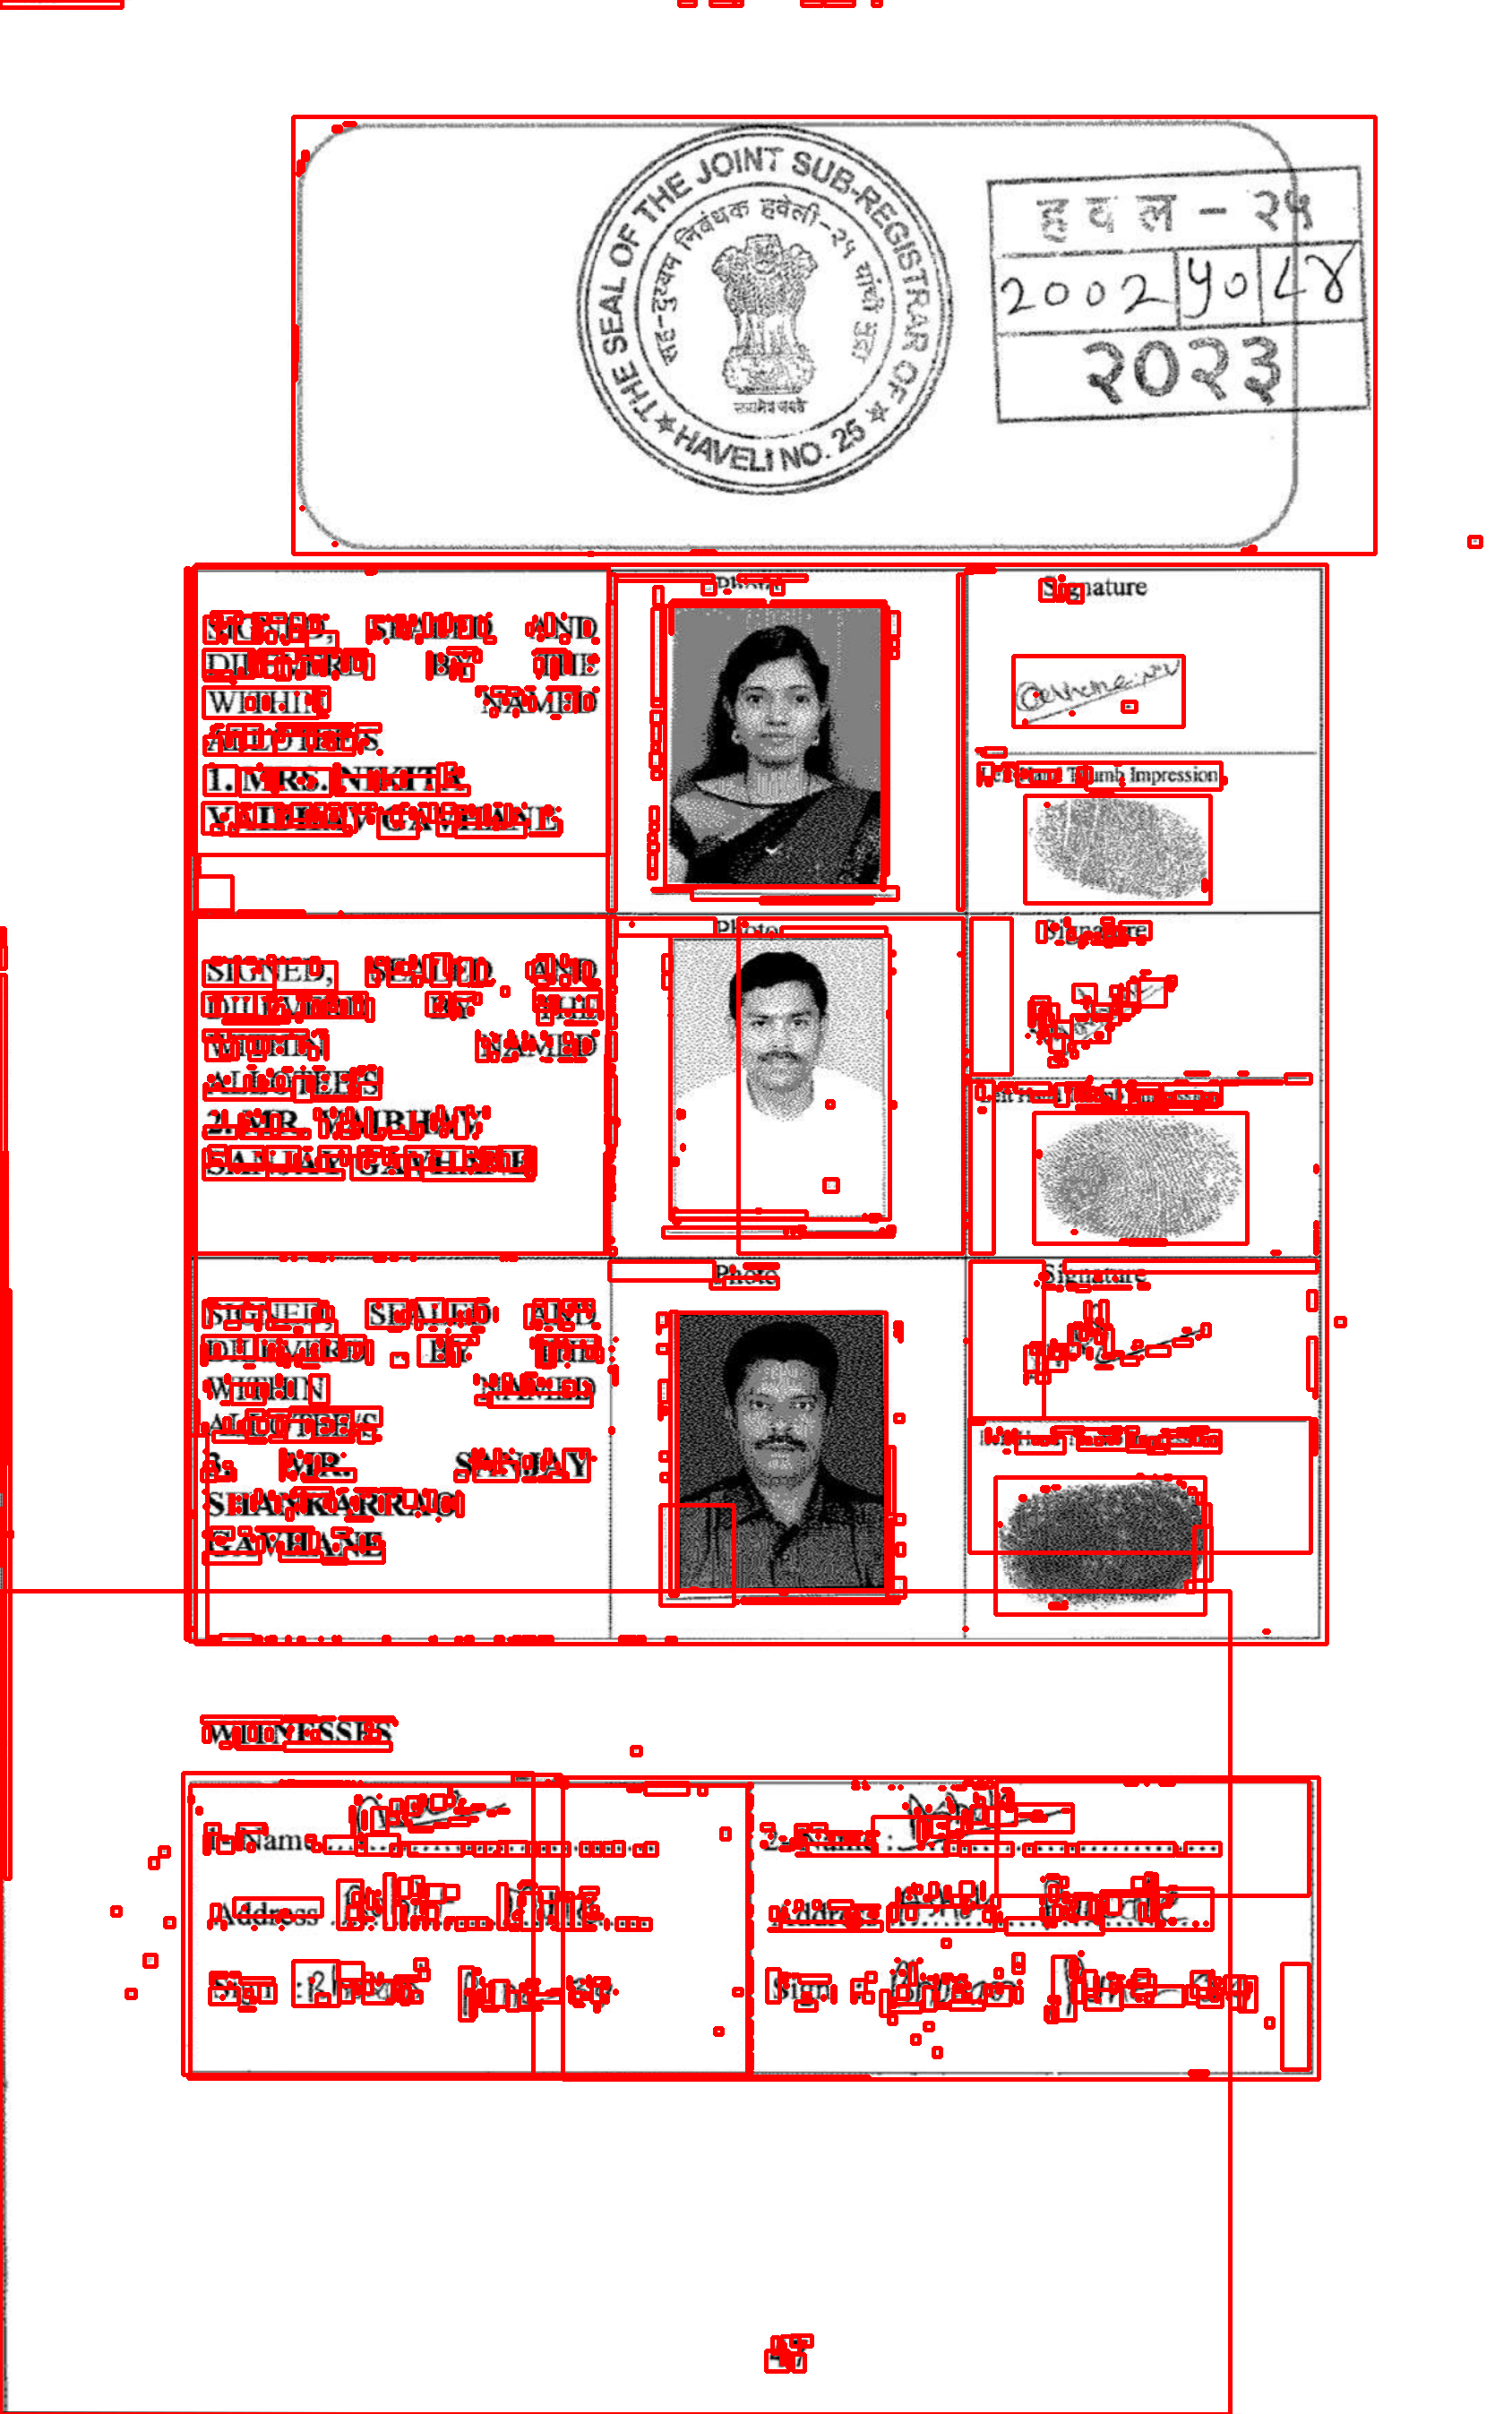 THE SEAL OF THE JOINT SUB-REGISTRAR OF
HAVELI NO. 25
सह-दुय्यम निबंधक हवेली-२५ यांची मुद्रा
सत्यमेव जयते
ह व ल - २५
2002 50 L8
२०२३
Photo
Signature
SIGNED, SEALED AND
DILEVERD BY THE
WITHIN NAMED
ALLOTEE/S
1. MRS. NIKITA
VAIBHAV GAVHANE
Left Hand Thumb Impression
Photo
Signature
SIGNED, SEALED AND
DILEVERD BY THE
WITHIN NAMED
ALLOTEE/S
2. MR. VAIBHAV
SANJAY GAVHANE
Left Hand Thumb Impression
Photo
Signature
SIGNED, SEALED AND
DILEVERD BY THE
WITHIN NAMED
ALLOTEE/S
3. MR. SANJAY
SHANKARRAO
GAVHANE
Left Hand Thumb Impression
WITNESSES
1- Name
2- Name :
Address :
Address :
Sign :
Sign :